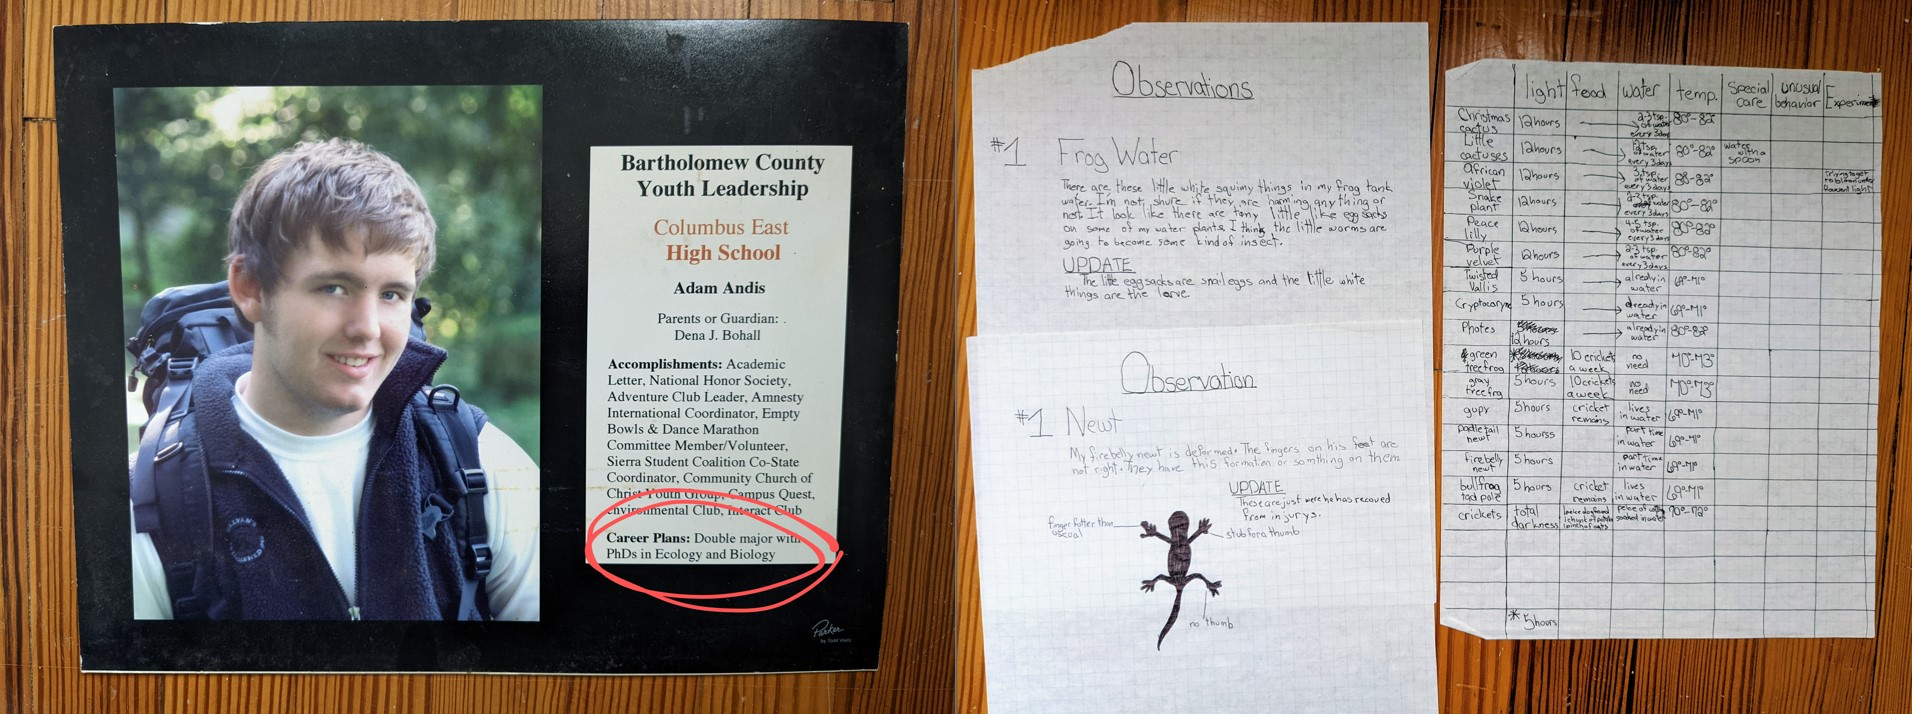 Bartholomew County
Youth Leadership
Columbus East
High School
Adam Andis
Parents or Guardian:
Dena J. Bohall
Accomplishments: Academic
Letter, National Honor Society,
Adventure Club Leader, Amnesty
International Coordinator, Empty
Bowls & Dance Marathon
Committee Member/Volunteer,
Sierra Student Coalition Co-State
Coordinator, Community Church of
Christ Youth Group, Campus Quest,
environmental Club, Interact Club
Career Plans: Double major with
PhDs in Ecology and Biology
Parker
by Todd
Observations
#1 Frog Water
There are these little white squimy things in my frog tank
water. I'm not shure if they are harming any thing or
not. It look like there are tony little like egg sacks
on some of my water plants. I think the little worms are
going to become some kind of insect.
UPDATE
The little egg sacks are snail eggs and the little white
things are the larve.
Observation
#1 Newt
My firebelly newt is deformed. The fingers on his feet are
not right. They have this formation or somthing on them
UPDATE
These are just were he has recoved
from injurys.
finger fatter than
uscual
stub for a thumb
no thumb
light food water temp. special care unusual behavior Experiment
Christmas cactus 12 hours 2-3 tsp. of water every 3 days 80°-82°
Little cactuses 12 hours of water every 3 days 80°-82° water with a spoon
African violet 12 hours 3 tsp. of water every 3 days Trying to get to bloom under light
Snake plant 12 hours water every 3 days 80°-82°
Peace lilly 12 hours of water every 3 days 80°-82°
Purple velvet 12 hours 2-3 tsp. of water every 3 days 80°-82°
Twisted Vallis 5 hours already in water
Cryptocoryne 5 hours already in water
Photes 12 hours already in water 80°-82°
green treefrog * 10 crickets a week no need
gray treefrog 5 hours 10 crickets a week no need
gupy 5 hours cricket remains lives in water
padletail newt 5 hourss part time in water
firebelly newt 5 hours part time in water
bullfrog tadpole 5 hours cricket remains lives in water
crickets total darkness 70°-72°
* 5 hours